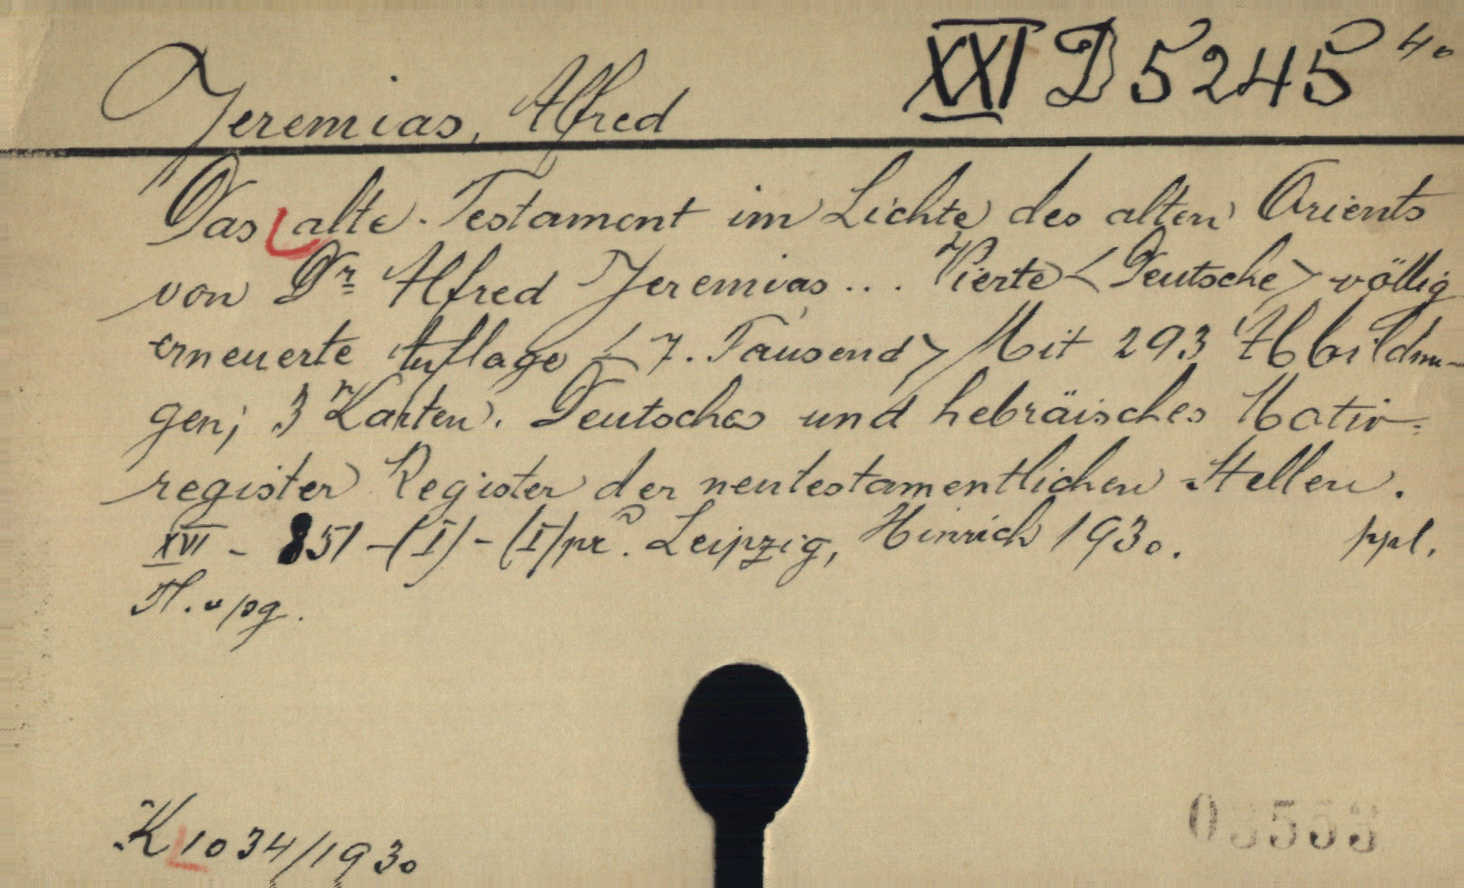 XXI D 5245 4o
Jeremias, Alfred
Das alte Testament im Lichte des alten Orients
von Dr Alfred Jeremias... Vierte <Deutsche> völlig
erneuerte Auflage <7. Tausend> Mit 293 Abbildun-
gen; 3 Karten. Deutsches und hebräisches Motiv-
register Register der neutestamentlichen Stellen.
XVI - 851 - (I) - (I) Leipzig, Hinrich 1930. ppl.
K 1034/1930